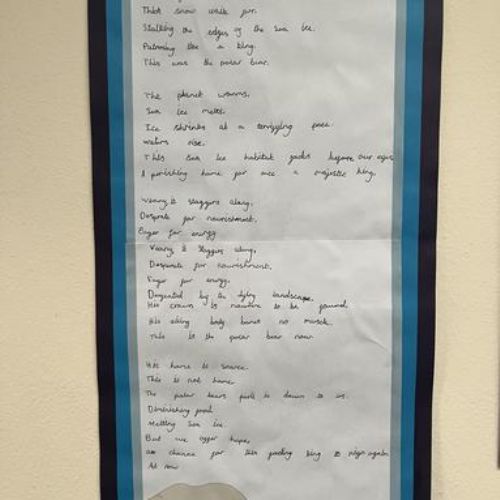 Thick snow white fur.
Stalking the edges of the sea ice.
Patrolling like a king.
This was the polar bear.
The planet warms,
Sea ice melts,
Ice shrinks at a terrifying pace.
waters rise.
This sea ice habitat fades before our eyes
A perishing home for once a majestic king.
Weary it staggers along,
Desprate for nourishment,
Eager for energy
Weary it staggers along,
Desperate for nourishment,
Eager for energy.
by the dying landscape
His crown is nowhere to be found
His aking body bones no muscle.
This is the polar bear now
His home is scarce.
This is not home
The polar bears fate is down to us.
Diminishing food
Melting sea ice.
But we offer hope,
a chance for this fading king to reign again
As now